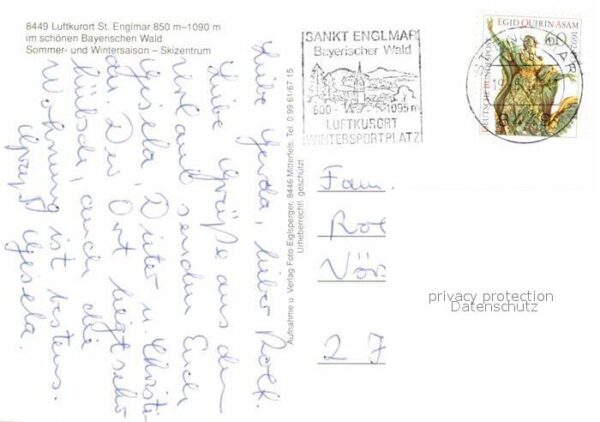 8449 Luftkurort St. Englmar 850 m–1090 m
im schönen Bayerischen Wald
Sommer- und Wintersaison – Skizentrum
Liebe Gerda, lieber Rolf.
Liebe Grüße aus dem
Urlaub senden Euch
Gisela, Dieter u. Christa
Der Ort liegt sehr
hübsch, auch die
Wohnung ist bestens.
Gruß Gisela.
Aufnahme u. Verlag Foto Eglsperger, 8446 Mitterfels, Tel. 0 99 61/67 15
Urheberrechtl. geschützt!
SANKT ENGLMAR
Bayerischer Wald
800 - 1095 m
LUFTKURORT
WINTERSPORTPLATZ
EGID QUIRIN ASAM
60
DEUTSCHE BUNDESPOST
Fam.
Rol
Vör
2 7
privacy protection
Datenschutz